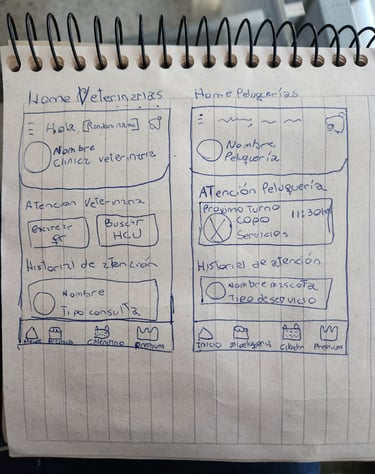 Home Veterinarias
Hola [Random name]
Nombre
Clinica veterinaria
Atencion Veterinaria
Escanear
Buscar
HCU
Historial de atención
Nombre
Tipo consulta
Inicio
calendario
Premium
Home Peluquerías
Nombre
Peluquería
Atención Peluquería
Proximo Turno
11:30
COPO
Servicios
Historial de atención
Nombre mascota
Tipo de servicio
Inicio
mi peluqueria
Premium